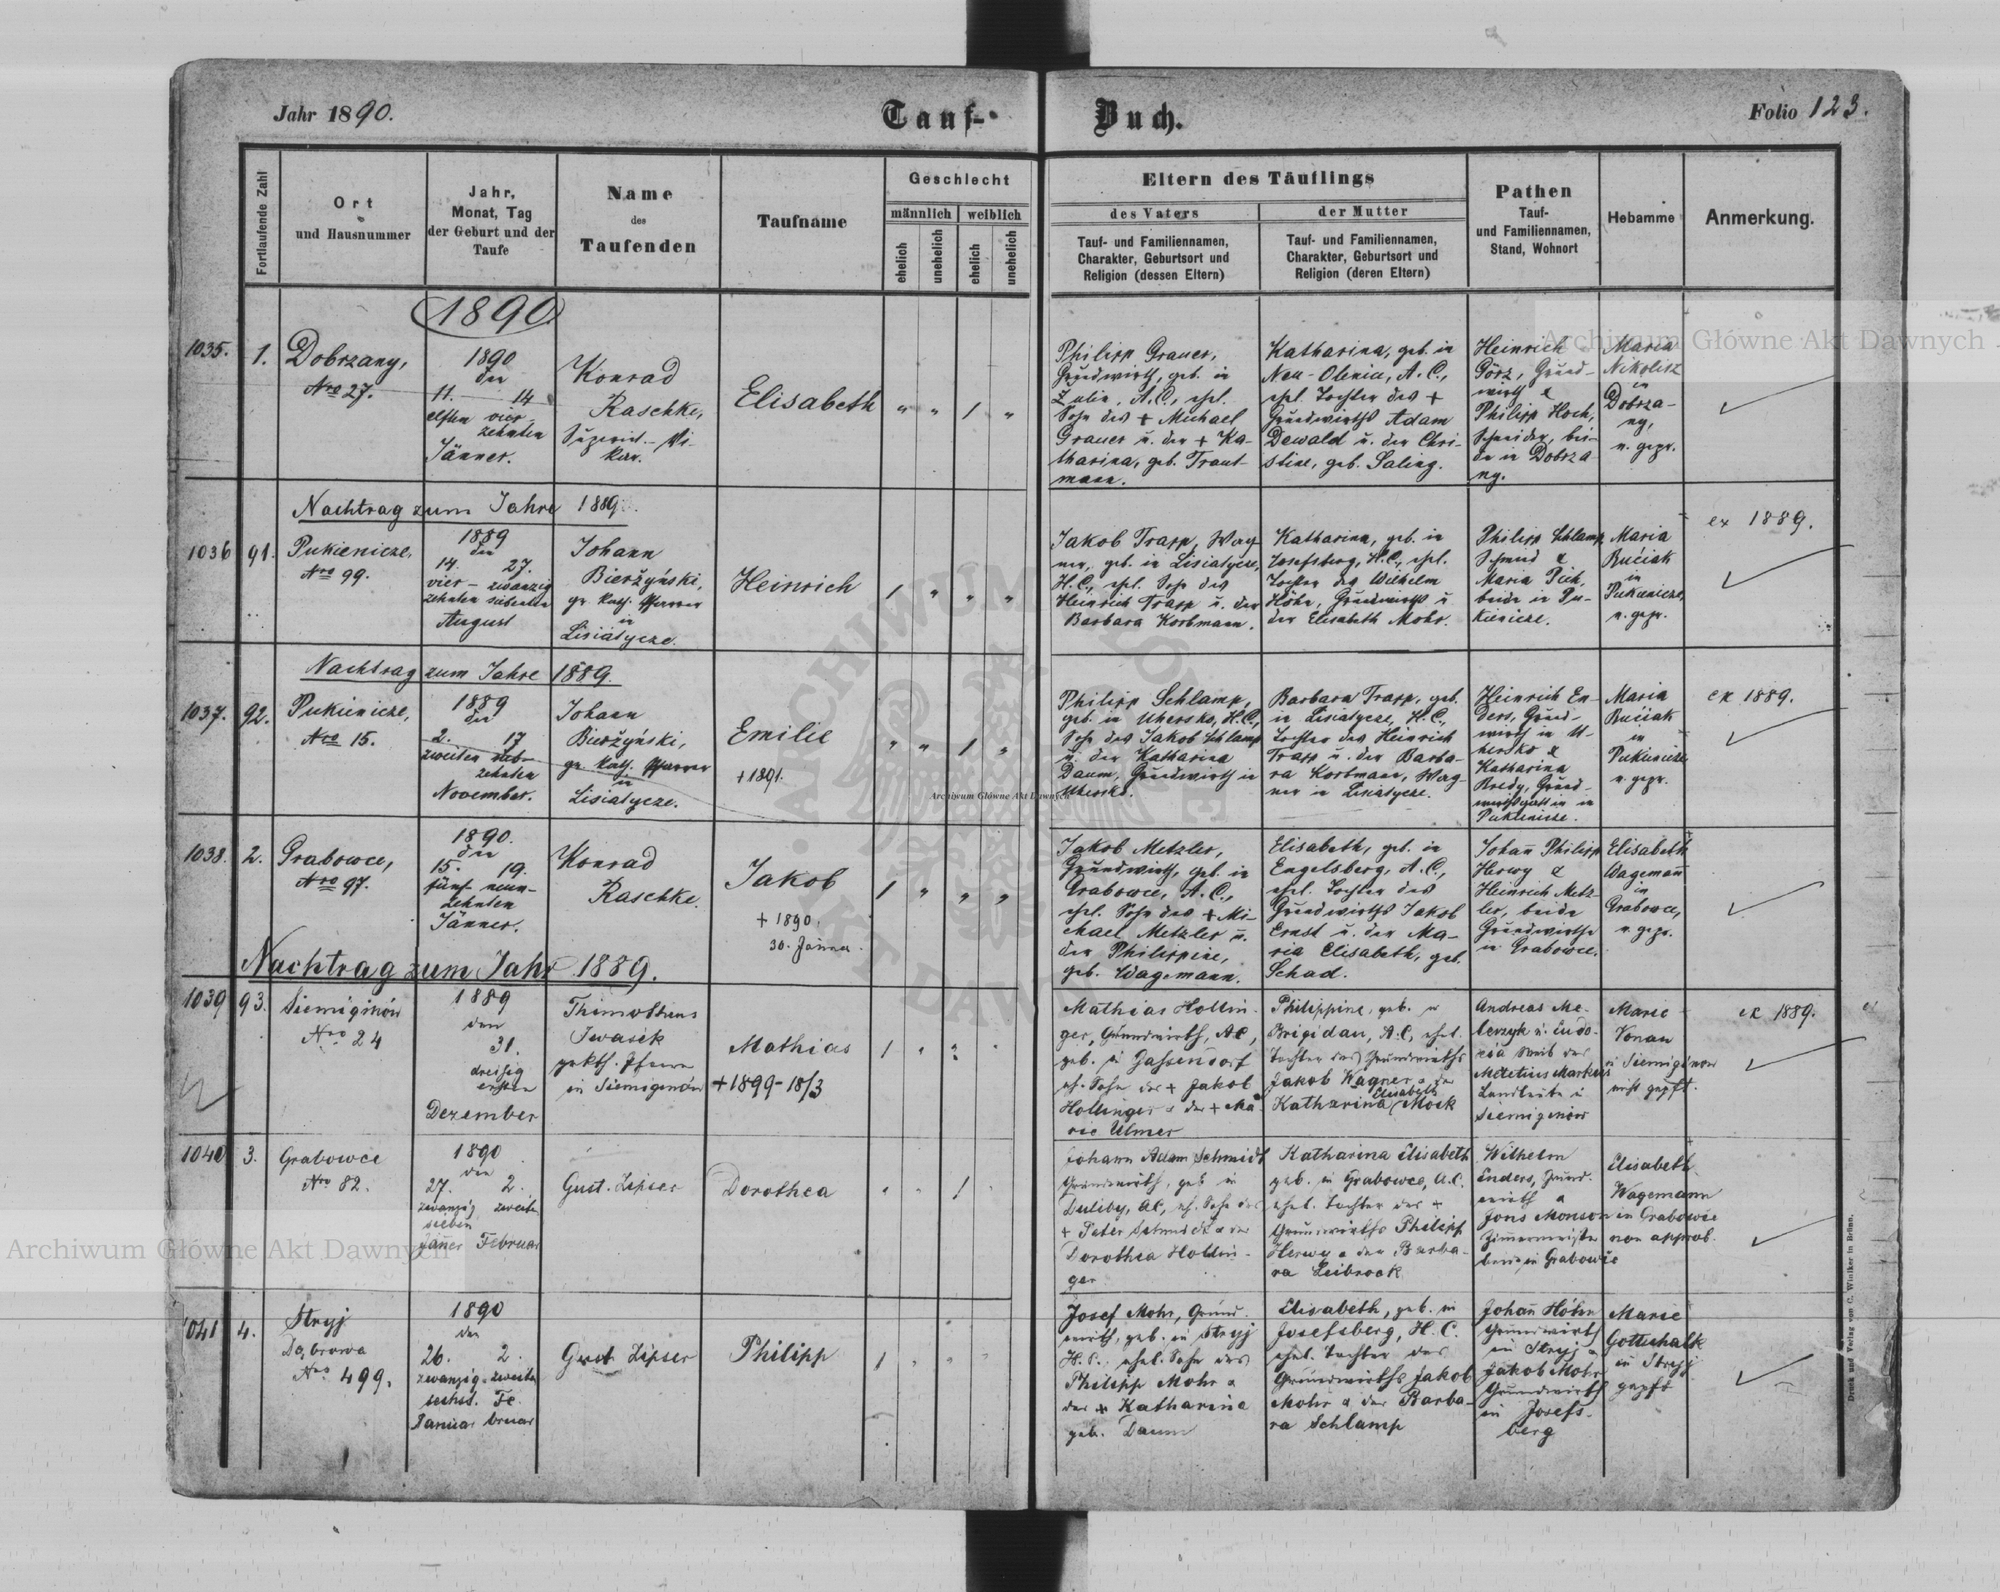 Jahr 1890.
Tauf-Buch.
Folio 123.
Fortlaufende Zahl
Ort
und Hausnummer
Jahr,
Monat, Tag
der Geburt und der
Taufe
Name
des
Taufenden
Taufname
Geschlecht
männlich
weiblich
ehelich
unehelich
ehelich
unehelich
Eltern des Täuflings
des Vaters
Tauf- und Familiennamen,
Charakter, Geburtsort und
Religion (dessen Eltern)
der Mutter
Tauf- und Familiennamen,
Charakter, Geburtsort und
Religion (deren Eltern)
Pathen
Tauf-
und Familiennamen,
Stand, Wohnort
Hebamme
Anmerkung.
1890.
1035. 1.
Dobrzany,
Nro 27.
1890
den
11. 14
elften vier-
zehnten
Jänner.
Konrad
Raschke,
Elisabeth
" " 1 "
Philipp Grauer,
Grundwirth, geb. in
A.C., ehel.
Sohn des + Michael
Grauer u. der + Ka-
tharina, geb. Traut-
mann.
Katharina, geb. in
Neu-Olenia, A.C.,
ehel. Tochter des +
Grundwirths Adam
Dewald u. der Chri-
stine, geb. Saling.
Heinrich
Görz, Grund-
wirth &
Philipp Hoch,
Schneider, bei-
de in Dobrza-
ny.
Maria
Nikolisz
in
Dobrza-
ny,
n. gepr.
Nachtrag zum Jahre 1889.
1036 91.
Pukienicze,
Nro 99.
1889
den
14. 27.
vier- zwanzig
zehnten siebenten
August
Johann
Bierżyński,
gr. kath. Pfarrer
in
Lisiatycze.
Heinrich
1 " " "
Jakob Trapp, Wag-
ner, geb. in Lisiatycze,
H.C., ehel. Sohn des
Heinrich Trapp u. der
Barbara Korbmann.
Katharina, geb. in
Josefsberg, H.C., ehel.
Tochter des Wilhelm
Höhn, Grundwirths u
der Elisabeth Mohr.
Philipp Schlamp,
Schmied &
Maria Pich,
beide in Pu-
kienicze.
Maria
Bučiak
in
Pukienicze,
n. gepr.
ex 1889.
Nachtrag zum Jahre 1889.
1037. 92.
Pukienicze,
Nro 15.
1889
den
2. 17
zweiten sieb-
zehnten
November.
Johann
Bierżyński,
gr. kath. Pfarrer
in
Lisiatycze.
Emilie
+ 1891.
" " 1 "
Philipp Schlamp,
geb. in Uhersko, H.C.,
Sohn des Jakob Schlamp
u. der Katharina
Daum, Grundwirth in
Uhersko.
Barbara Trapp, geb.
in Lisiatycze, H.C.,
Tochter des Heinrich
Trapp u. der Barba-
ra Korbmann, Wag-
ner in Lisiatycze.
Heinrich En-
ders, Grund-
wirth in U-
hersko &
Katharina
Bredy, Grund-
wirthsgattin in
Pukienicze.
Maria
Bučiak
in
Pukienicze
n. gepr.
ex 1889.
1038. 2.
Grabowce,
Nro 97.
1890.
den
15. 19.
fünf- neun-
zehnten
Jänner.
Konrad
Raschke.
Jakob
+ 1890.
30. Jänner.
1 " " "
Jakob Metzler,
Grundwirth, geb. in
Grabowce, A.C.,
ehel. Sohn des + Mi-
chael Metzler u.
der Philippine,
geb. Wagemann.
Elisabeth, geb. in
Engelsberg, A.C.,
ehel. Tochter des
Grundwirths Jakob
Ernst u. der Ma-
ria Elisabeth, geb.
Schad.
Johañ Philipp
Herwy &
Heinrich Metz-
ler, beide
Grundwirthe
in Grabowce.
Elisabeth
Wagemañ
in
Grabowce,
n. gepr.
Nachtrag zum Jahr 1889.
1039 93.
Siemiginów
Nro 24
1889
den
31.
dreißig
ersten
Dezember
Thimotheus
Iwasik
gr. kth. Pfarrer
in Siemiginów
Mathias
+ 1899-18/3
1 " " "
Mathias Hollin-
ger, Grundwirth, AC,
geb. in Gassendorf
eh. Sohn der + Jakob
Hollinger & der + Ma-
rie Ulmer
Philippine, geb. in
Brigidau, A.C., ehel.
Tochter des Grundwirths
Jakob Wagner u der
Katharina Elisabeth Mock
Andreas Me-
lerzyk u. Eudo-
xia Weib des
Meletius Markus
Landleute in
Siemiginów
Marie
Vonau
in Siemiginow
nicht gepft.
ex 1889.
1040 3.
Grabowce
Nro 82.
1890
den
27. 2.
zwanzig zweiten
sieben
Jäner Februar
Gust. Zipser
Dorothea
" " 1 "
Johann Adam Schmidt
Grundwirth, geb in
Duliby, AC, eh. Sohn des
+ Peter Schmidt & der
Dorothea Hollin-
ger
Katharina Elisabeth
geb. in Grabowce, A.C.
ehel. Tochter des +
Grundwirths Philipp
Herwy & der Barba-
ra Leibrock
Wilhelm
Enders, Grund-
wirth &
Jons Monson
Zimmermeister
beide in Grabowce
Elisabeth
Wagemann
in Grabowce
non approb.
1041 4.
Stryj
Dąbrowa
Nro 499.
1890
den
26. 2.
zwanzig- zweiten
sechst. Fe-
Januar bruar
Gust Zipser
Philipp
1 " " "
Josef Mohr, Grund-
wirth, geb. in Stryj
H.C., ehel. Sohn des
Philipp Mohr &
der + Katharina
geb. Daum
Elisabeth, geb. in
Josefsberg, H.C.
ehel. Tochter des
Grundwirths Jakob
Mohr & der Barba-
ra Schlamp
Johañ Höhn
Grundwirth
in Stryj &
Jakob Mohr
Grundwirth
in Josefs-
berg
Marie
Gottschalk
in Stryj
gepft
Druck und Verlag von C. Winiker in Brünn.
Archiwum Główne Akt Dawnych
Archiwum Główne Akt Dawnych
Archiwum Główne Akt Dawnych